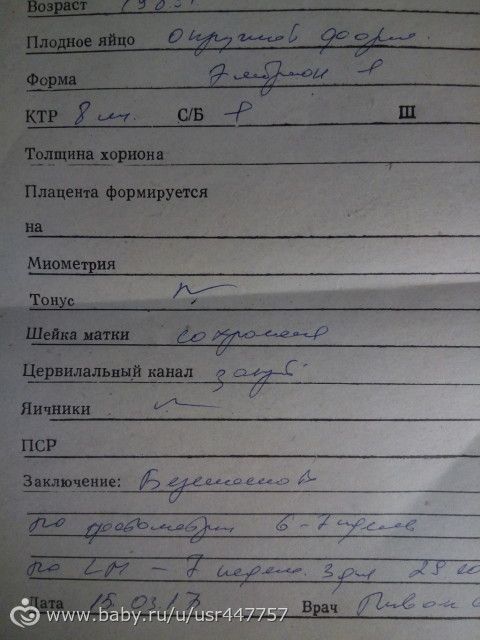 Возраст
Плодное яйцо округлой формы.
Форма Эмбрион +
КТР 8 мм. С/Б + Ш
Толщина хориона
Плацента формируется
на
Миометрия
Тонус N
Шейка матки сохранена
Цервилальный канал закрыт
Яичники N
ПСР
Заключение: Беременность
по фетометрии 6-7 недель
по LM - 7 недель 3 дня
Дата 15.03.13 Врач
www.baby.ru/u/usr447757